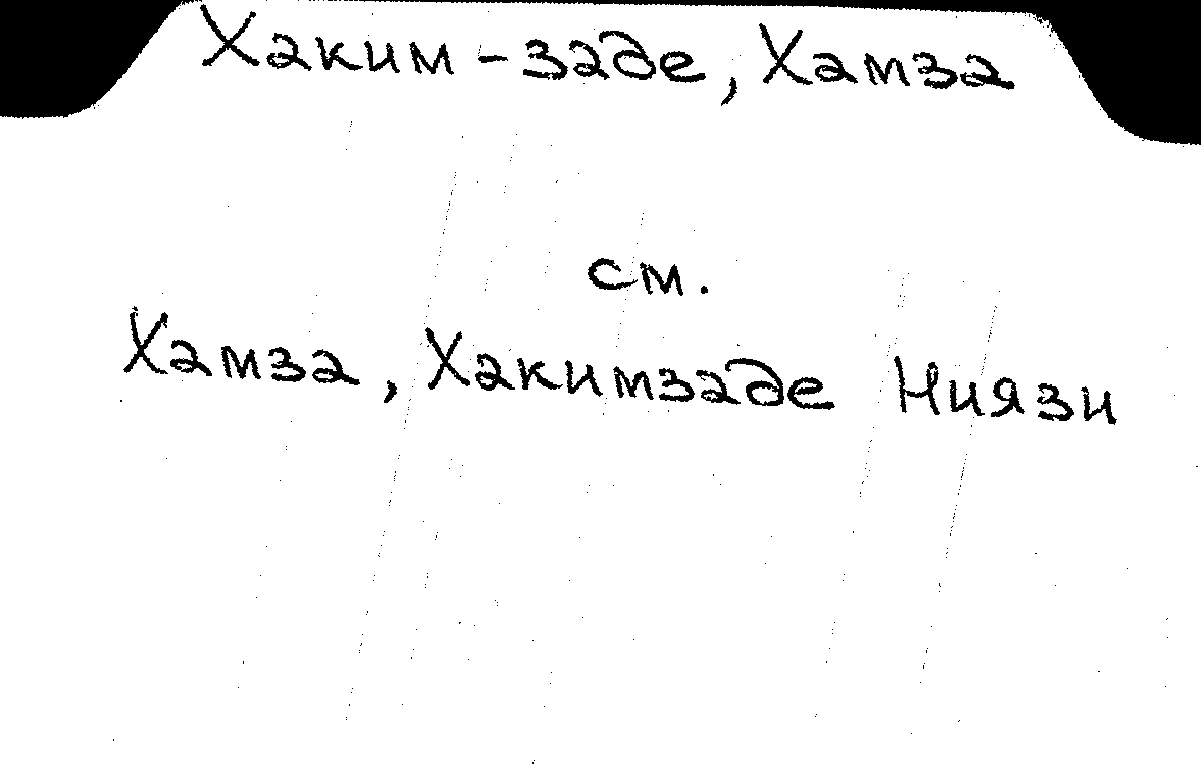 Хаким-заде, Хамза
см.
Хамза, Хакимзаде Ниязи